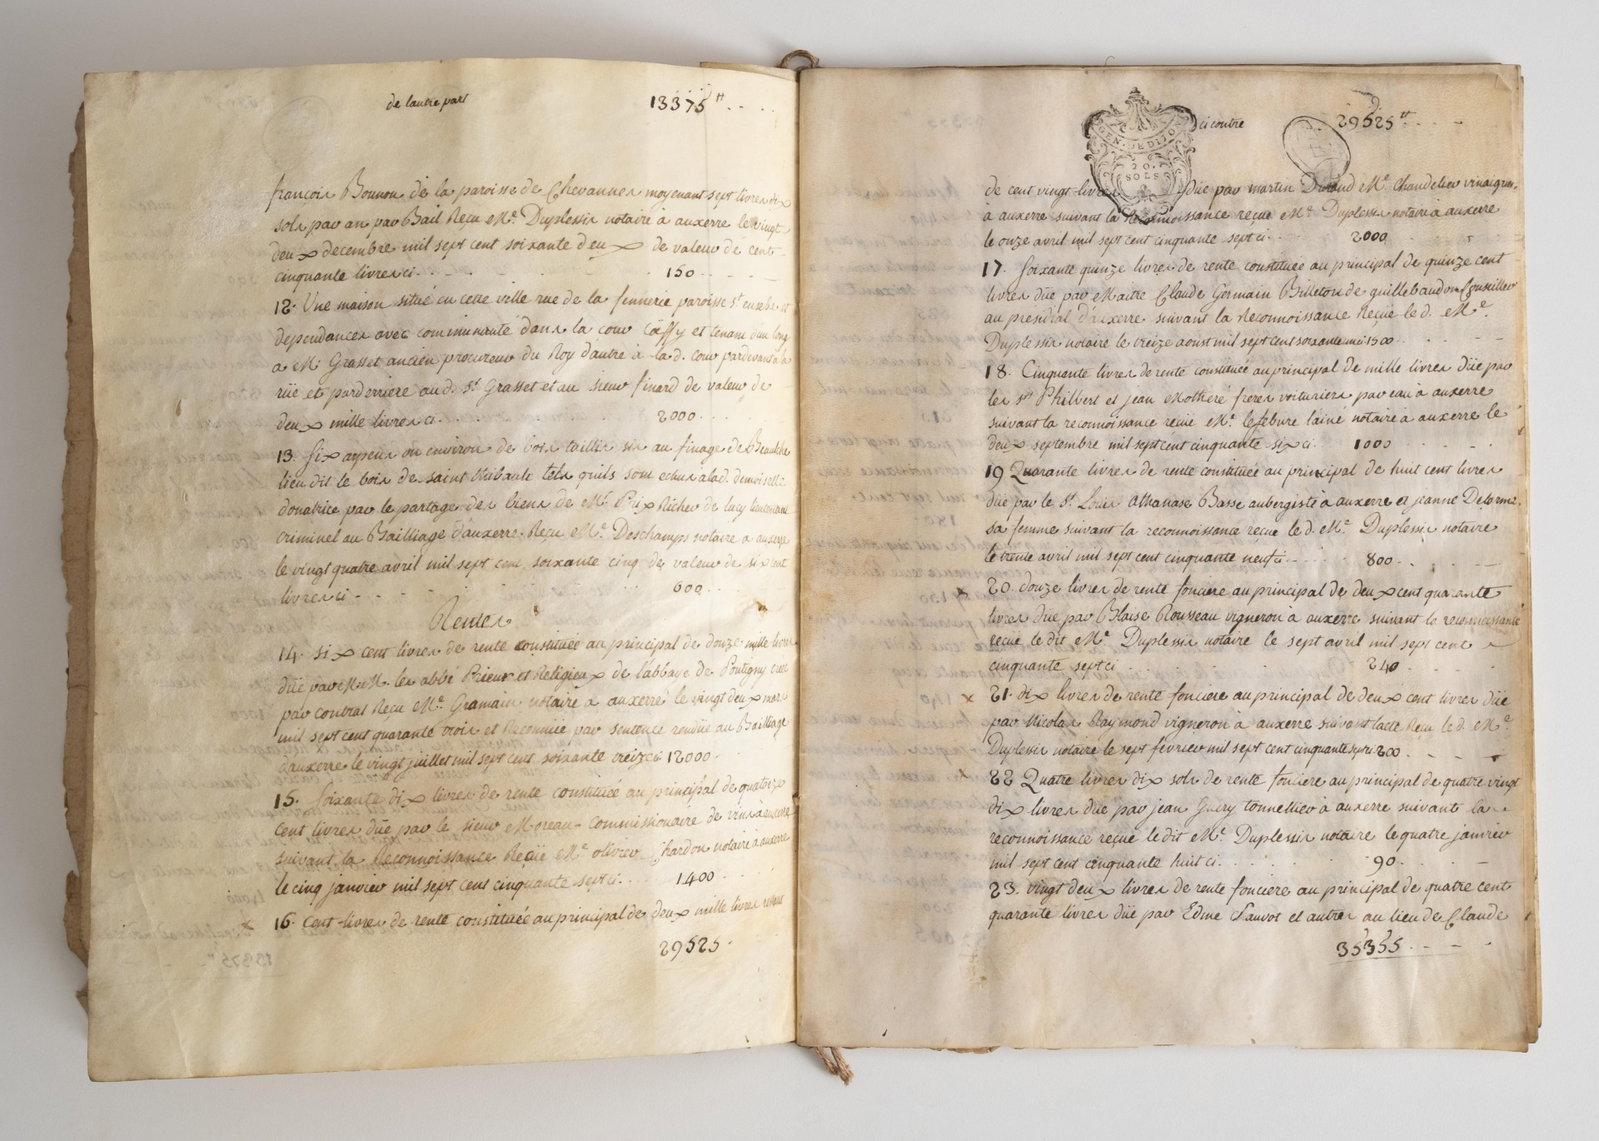 de lautre part 13375 ₶
francois Bounon de la paroisse de Chevannes moyenant sept livres dix
sols par an par Bail Recu Me. Duplessis notaire à auxerre le vingt
deux decembre mil sept cent soixante deux de valeur de cent
cinquante livres ci 150
12. Une maison situé en cette ville rue de la fennerie paroisse st. eusebe et
dependances avec communauté dans la cour Caffy et tenant d'un long
a M. Grasset ancien procureur du Roy dautre à la d. cour pardevant a la
rüe et parderriere aud. st. Grasset et au sieur finard de valeur de
deux mille livres ci 2000
13. Six arpens ou environ de bois taillis sis au finage de
lieu dit le bois de saint thibault tels quils sont echus a lad. demoiselle
donatrice par le partage des biens de Mr. Prix Richer de lucy lieutenant
criminel au Bailliage d'auxerre. Recu Me. Deschamps notaire a auxerre
le vingt quatre avril mil sept cent soixante cinq de valeur de six cent
livres ci 600
Rentes
14. Six cent livres de rente constituée au principal de douze mille livres
düe par M.M. les abbé Prieur et Religieux de l'abbaye de Pontigny
par contrat Recu Me. Gramain notaire a auxerre le vingt deux mars
mil sept cent quarante trois et Reconnüe par sentence rendüe au Bailliage
dauxerre le vingt juillet mil sept cent soixante treize ci 12000
15. Soixante dix livres de rente constituée au principal de quatorze
cent livres düe par le sieur Moreau commissionaire de vins à auxerre
suivant la Reconnoissance Recüe Me. olivier Chardon notaire à auxerre
le cinq janvier mil sept cent cinquante sept ci 1400
16. Cent livres de rente constituée au principal de deux mille livres
29525
13375 ₶
ci contre 29525 ₶
GEN. DE DIJON
20.
SOLS
de cent vingt livres düe par martin Durand Me. Chandelier vinaigrier
à auxerre suivant la Reconnoissance reçue Me. Duplessis notaire à auxerre
le onze avril mil sept cent cinquante sept ci 2000
17. Soixante quinze livres de rente constituée au principal de quinze cent
livres düe par Maitre Claude Germain Billeton de guillebaudon Conseiller
au presidial d'auxerre suivant la Reconnoissance Reçue le d. Me.
Duplessis notaire le treize aoust mil sept cent soixante un 1500
18. Cinquante livres de rente constituée au principal de mille livres düe par
les srs Philbert et jean Motheré freres voituriers par eau à auxerre
suivant la reconnoissance reçüe Me. lefebure laine notaire à auxerre le
deux septembre mil sept cent cinquante six ci 1000
19 Quarante livres de rente constituée au principal de huit cent livres
düe par le st. Louis athanase Basse aubergiste à auxerre et jeanne Delorme
sa femme suivant la reconnoissance reçue le d. Me. Duplessis notaire
le trente avril mil sept cent cinquante neuf ci 800
20. douze livres de rente fonciere au principal de deux cent quarante
livres düe par Blaise Rousseau vigneron à auxerre suivant la reconnoissance
reçue le dit Me. Duplessis notaire le sept avril mil sept cent
cinquante sept ci 240
x 21. dix livres de rente fonciere au principal de deux cent livres düe
par Nicolas Raymond vigneron à auxerre suivant lacte Recu le d. Me.
Duplessis notaire le sept fevrier mil sept cent cinquante sept ci 200
22 Quatre livres dix sols de rente fonciere au principal de quatre vingt
dix livres düe par jean Guéry tonnellier à auxerre suivant la
reconnoissance reçue le dit Me. Duplessis notaire le quatre janvier
mil sept cent cinquante huit ci 90
23. vingt deux livres de rente fonciere au principal de quatre cent
quarante livres düe par Edme Sauvot et autres au lieu de Claude
35355